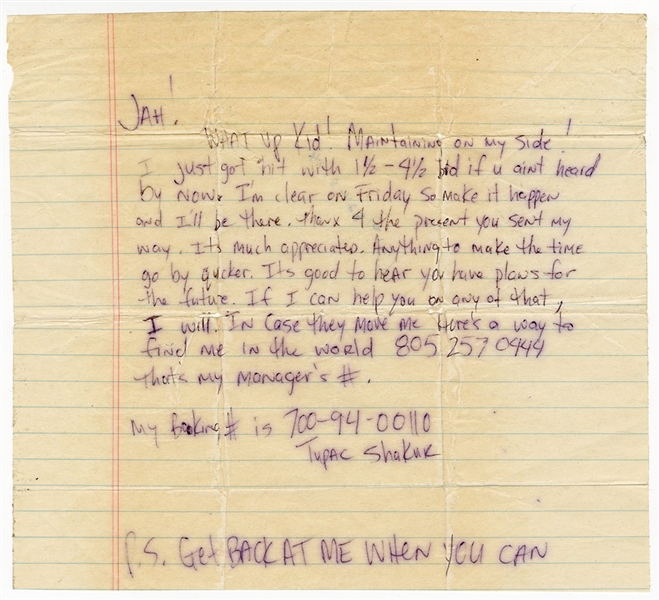 JAH!
WHAT UP Kid! MAintAining on my side!
I just got hit with 1½ - 4½ bid if u aint heard
by now. I'm clear on Friday so make it happen
and I'll be there. thanx 4 the present you sent my
way. Its much appreciated. Anything to make the time
go by qucker. Its good to heAr you have plans for
the future. If I can help you on any of that,
I will. In Case they move me Here's a way to
find me in the world 805 257 0444
that's my manager's #.
My Booking# is 700-94-00110
Tupac Shakur
P.S. Get BACK AT ME WHEN YOU CAN